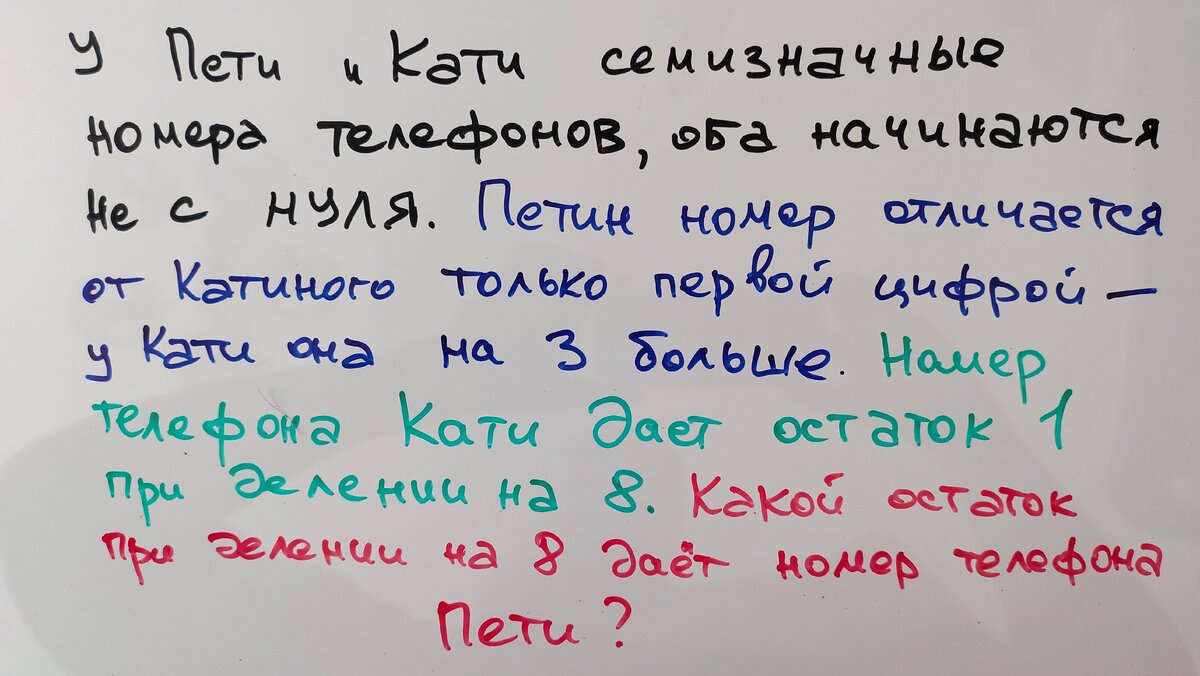 У Пети и Кати семизначные
номера телефонов, оба начинаются
не с нуля. Петин номер отличается
от Катиного только первой цифрой —
у Кати она на 3 больше. Номер
телефона Кати дает остаток 1
при делении на 8. Какой остаток
при делении на 8 даёт номер телефона
Пети?